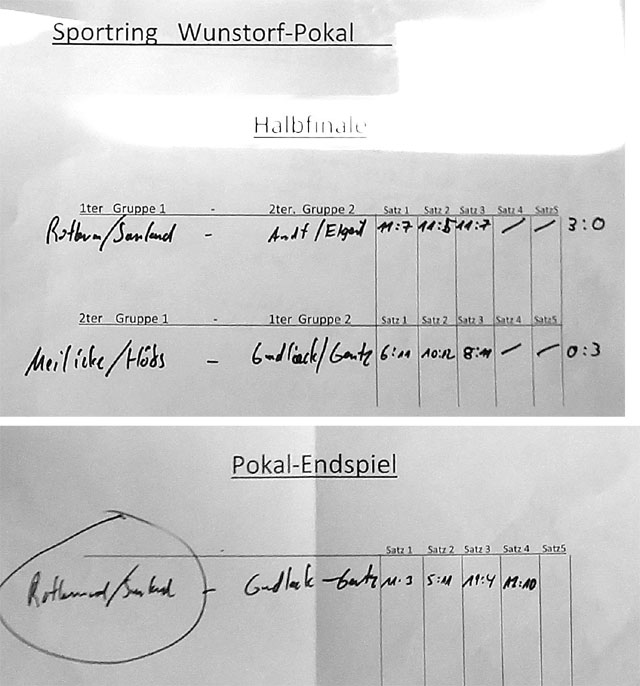 Sportring Wunstorf-Pokal
Halbfinale
1ter Gruppe 1 - 2ter. Gruppe 2 Satz 1 Satz 2 Satz 3 Satz 4 Satz5
- 11:7 11:5 11:7 / / 3:0
2ter Gruppe 1 - 1ter Gruppe 2 Satz 1 Satz 2 Satz 3 Satz 4 Satz5
Meilicke/ - 6:11 10:12 8:11 / / 0:3
Pokal-Endspiel
- Satz 1 Satz 2 Satz 3 Satz 4 Satz5
- 11:3 5:11 11:4 12:10